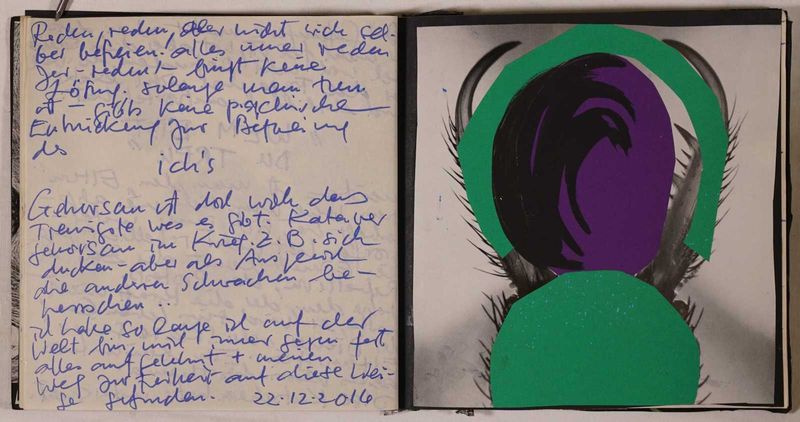 Reden, reden, aber nicht sich sel-
ber befreien. alles immer reden
zer-redent - bringt keine
Lösung. solange man treu
ist - gibts keine psychische
Entwicklung zur Befreiung
des
ich's
Gehorsam ist doch wohl das
Traurigste was es gibt.
gehorsam im Krieg. z.B. sich
ducken - aber als Ausgleich
die anderen Schwachen be-
herrschen ..
ich habe so lange ich auf der
Welt bin, mich immer gegen fast
alles aufgelehnt + meinen
Weg zur Freiheit auf diese Wei-
se gefunden. 22.12.2016